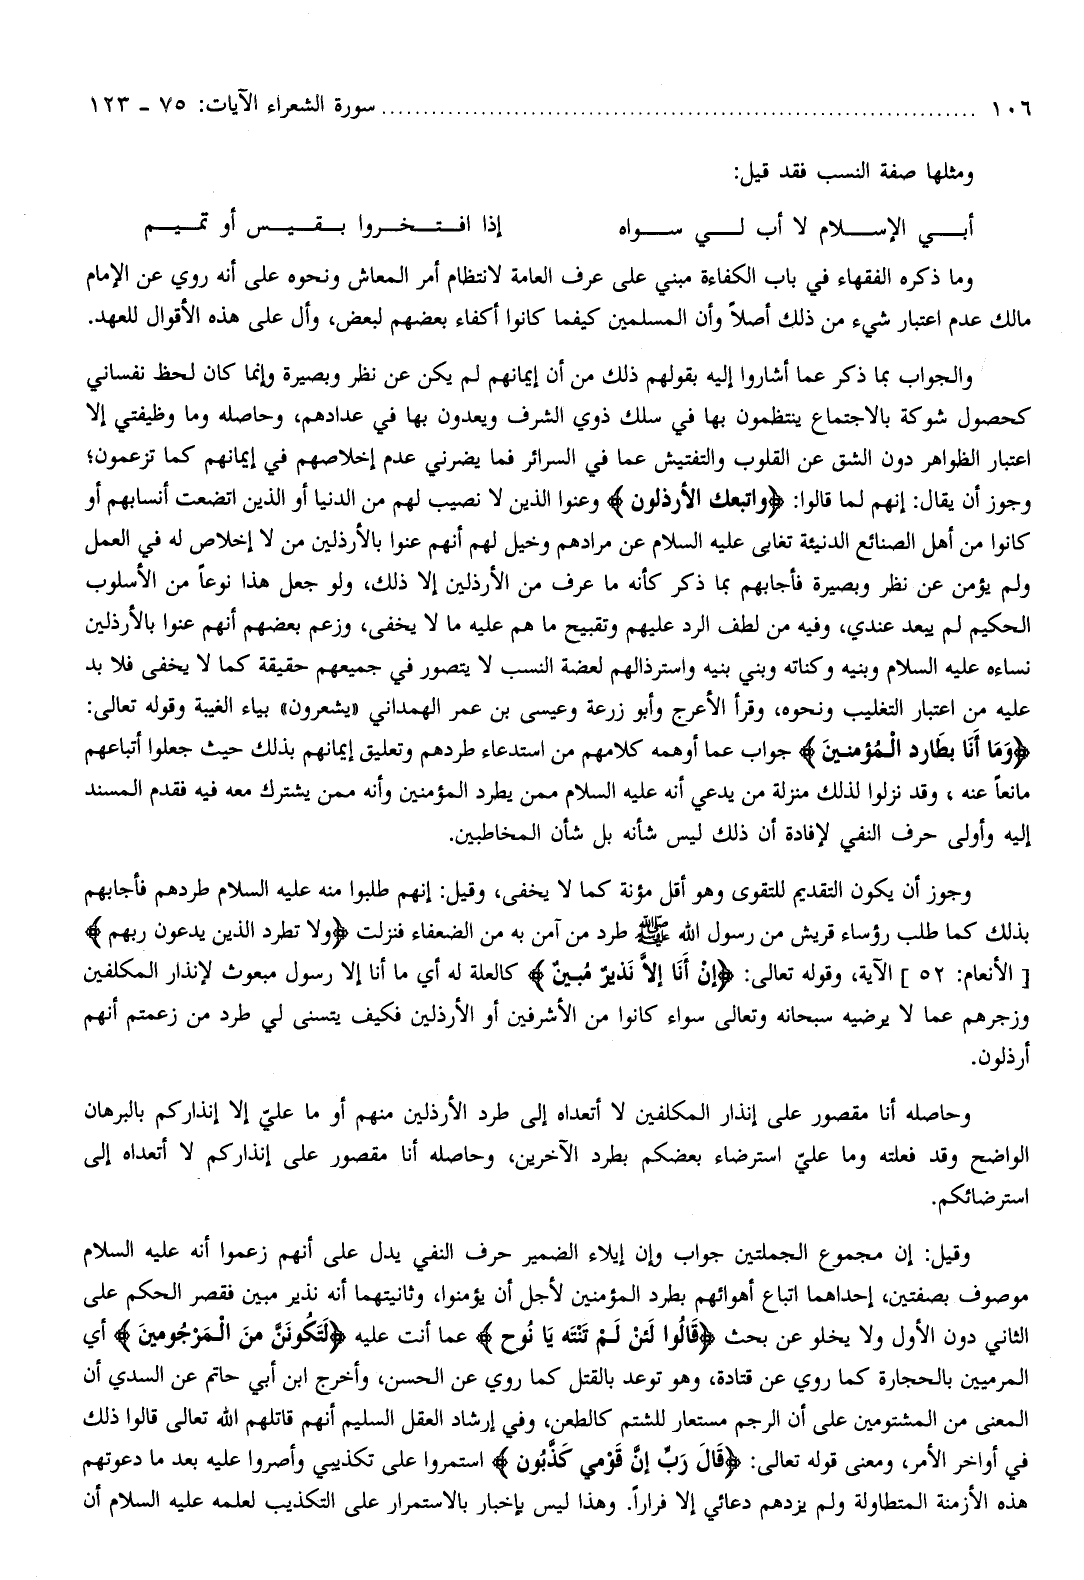 ١٠٦ ........................................................................ سورة الشعراء الآيات: ٧٥ ـ ١٢٣
ومثلها صفة النسب فقد قيل:
أبـــي الإســـلام لا أب لـــي ســـواه إذا افـتـخـروا بـقـيـس أو تمـيـم
وما ذكره الفقهاء في باب الكفاءة مبني على عرف العامة لانتظام أمر المعاش ونحوه على أنه روي عن الإمام
مالك عدم اعتبار شيء من ذلك أصلاً وأن المسلمين كيفما كانوا أكفاء بعضهم لبعض، وأل على هذه الأقوال للعهد.
والجواب بما ذكر عما أشاروا إليه بقولهم ذلك من أن إيمانهم لم يكن عن نظر وبصيرة وإنما كان لحظ نفساني
كحصول شوكة بالاجتماع ينتظمون بها في سلك ذوي الشرف ويعدون بها في عدادهم، وحاصله وما وظيفتي إلا
اعتبار الظواهر دون الشق عن القلوب والتفتيش عما في السرائر فما يضرني عدم إخلاصهم في إيمانهم كما تزعمون؛
وجوز أن يقال: إنهم لما قالوا: ﴿واتبعك الأرذلون﴾ وعنوا الذين لا نصيب لهم من الدنيا أو الذين اتضعت أنسابهم أو
كانوا من أهل الصنائع الدنيئة تغابى عليه السلام عن مرادهم وخيل لهم أنهم عنوا بالأرذلين من لا إخلاص له في العمل
ولم يؤمن عن نظر وبصيرة فأجابهم بما ذكر كأنه ما عرف من الأرذلين إلا ذلك، ولو جعل هذا نوعاً من الأسلوب
الحكيم لم يبعد عندي، وفيه من لطف الرد عليهم وتقبيح ما هم عليه ما لا يخفى، وزعم بعضهم أنهم عنوا بالأرذلين
نساءه عليه السلام وبنيه وكناته وبني بنيه واسترذالهم لعضة النسب لا يتصور في جميعهم حقيقة كما لا يخفى فلا بد
عليه من اعتبار التغليب ونحوه، وقرأ الأعرج وأبو زرعة وعيسى بن عمر الهمداني «يشعرون» بياء الغيبة وقوله تعالى:
﴿وَمَا أَنَا بطَارد الْمُؤمنينَ﴾ جواب عما أوهمه كلامهم من استدعاء طردهم وتعليق إيمانهم بذلك حيث جعلوا أتباعهم
مانعاً عنه ، وقد نزلوا لذلك منزلة من يدعي أنه عليه السلام ممن يطرد المؤمنين وأنه ممن يشترك معه فيه فقدم المسند
إليه وأولى حرف النفي لإفادة أن ذلك ليس شأنه بل شأن المخاطبين.
وجوز أن يكون التقديم للتقوى وهو أقل مؤنة كما لا يخفى، وقيل: إنهم طلبوا منه عليه السلام طردهم فأجابهم
بذلك كما طلب رؤساء قريش من رسول الله ﷺ طرد من آمن به من الضعفاء فنزلت ﴿ولا تطرد الذين يدعون ربهم﴾
[ الأنعام: ٥٢ ] الآية، وقوله تعالى: ﴿إنْ أَنَا إلاَّ نَذيرٌ مُبينٌ﴾ كالعلة له أي ما أنا إلا رسول مبعوث لإنذار المكلفين
وزجرهم عما لا يرضيه سبحانه وتعالى سواء كانوا من الأشرفين أو الأرذلين فكيف يتسنى لي طرد من زعمتم أنهم
أرذلون.
وحاصله أنا مقصور على إنذار المكلفين لا أتعداه إلى طرد الأرذلين منهم أو ما عليّ إلا إنذاركم بالبرهان
الواضح وقد فعلته وما عليّ استرضاء بعضكم بطرد الآخرين، وحاصله أنا مقصور على إنذاركم لا أتعداه إلى
استرضائكم.
وقيل: إن مجموع الجملتين جواب وإن إيلاء الضمير حرف النفي يدل على أنهم زعموا أنه عليه السلام
موصوف بصفتين، إحداهما اتباع أهوائهم بطرد المؤمنين لأجل أن يؤمنوا، وثانيتهما أنه نذير مبين فقصر الحكم على
الثاني دون الأول ولا يخلو عن بحث ﴿قَالُوا لَئنْ لَمْ تَنْتَه يَا نُوح﴾ عما أنت عليه ﴿لَتَكُونَنَّ منَ الْمَرْجُومينَ﴾ أي
المرميين بالحجارة كما روي عن قتادة، وهو توعد بالقتل كما روي عن الحسن، وأخرج ابن أبي حاتم عن السدي أن
المعنى من المشتومين على أن الرجم مستعار للشتم كالطعن، وفي إرشاد العقل السليم أنهم قاتلهم الله تعالى قالوا ذلك
في أواخر الأمر، ومعنى قوله تعالى: ﴿قَالَ رَبِّ إنَّ قَوْمي كَذَّبُون﴾ استمروا على تكذيبي وأصروا عليه بعد ما دعوتهم
هذه الأزمنة المتطاولة ولم يزدهم دعائي إلا فراراً. وهذا ليس بإخبار بالاستمرار على التكذيب لعلمه عليه السلام أن